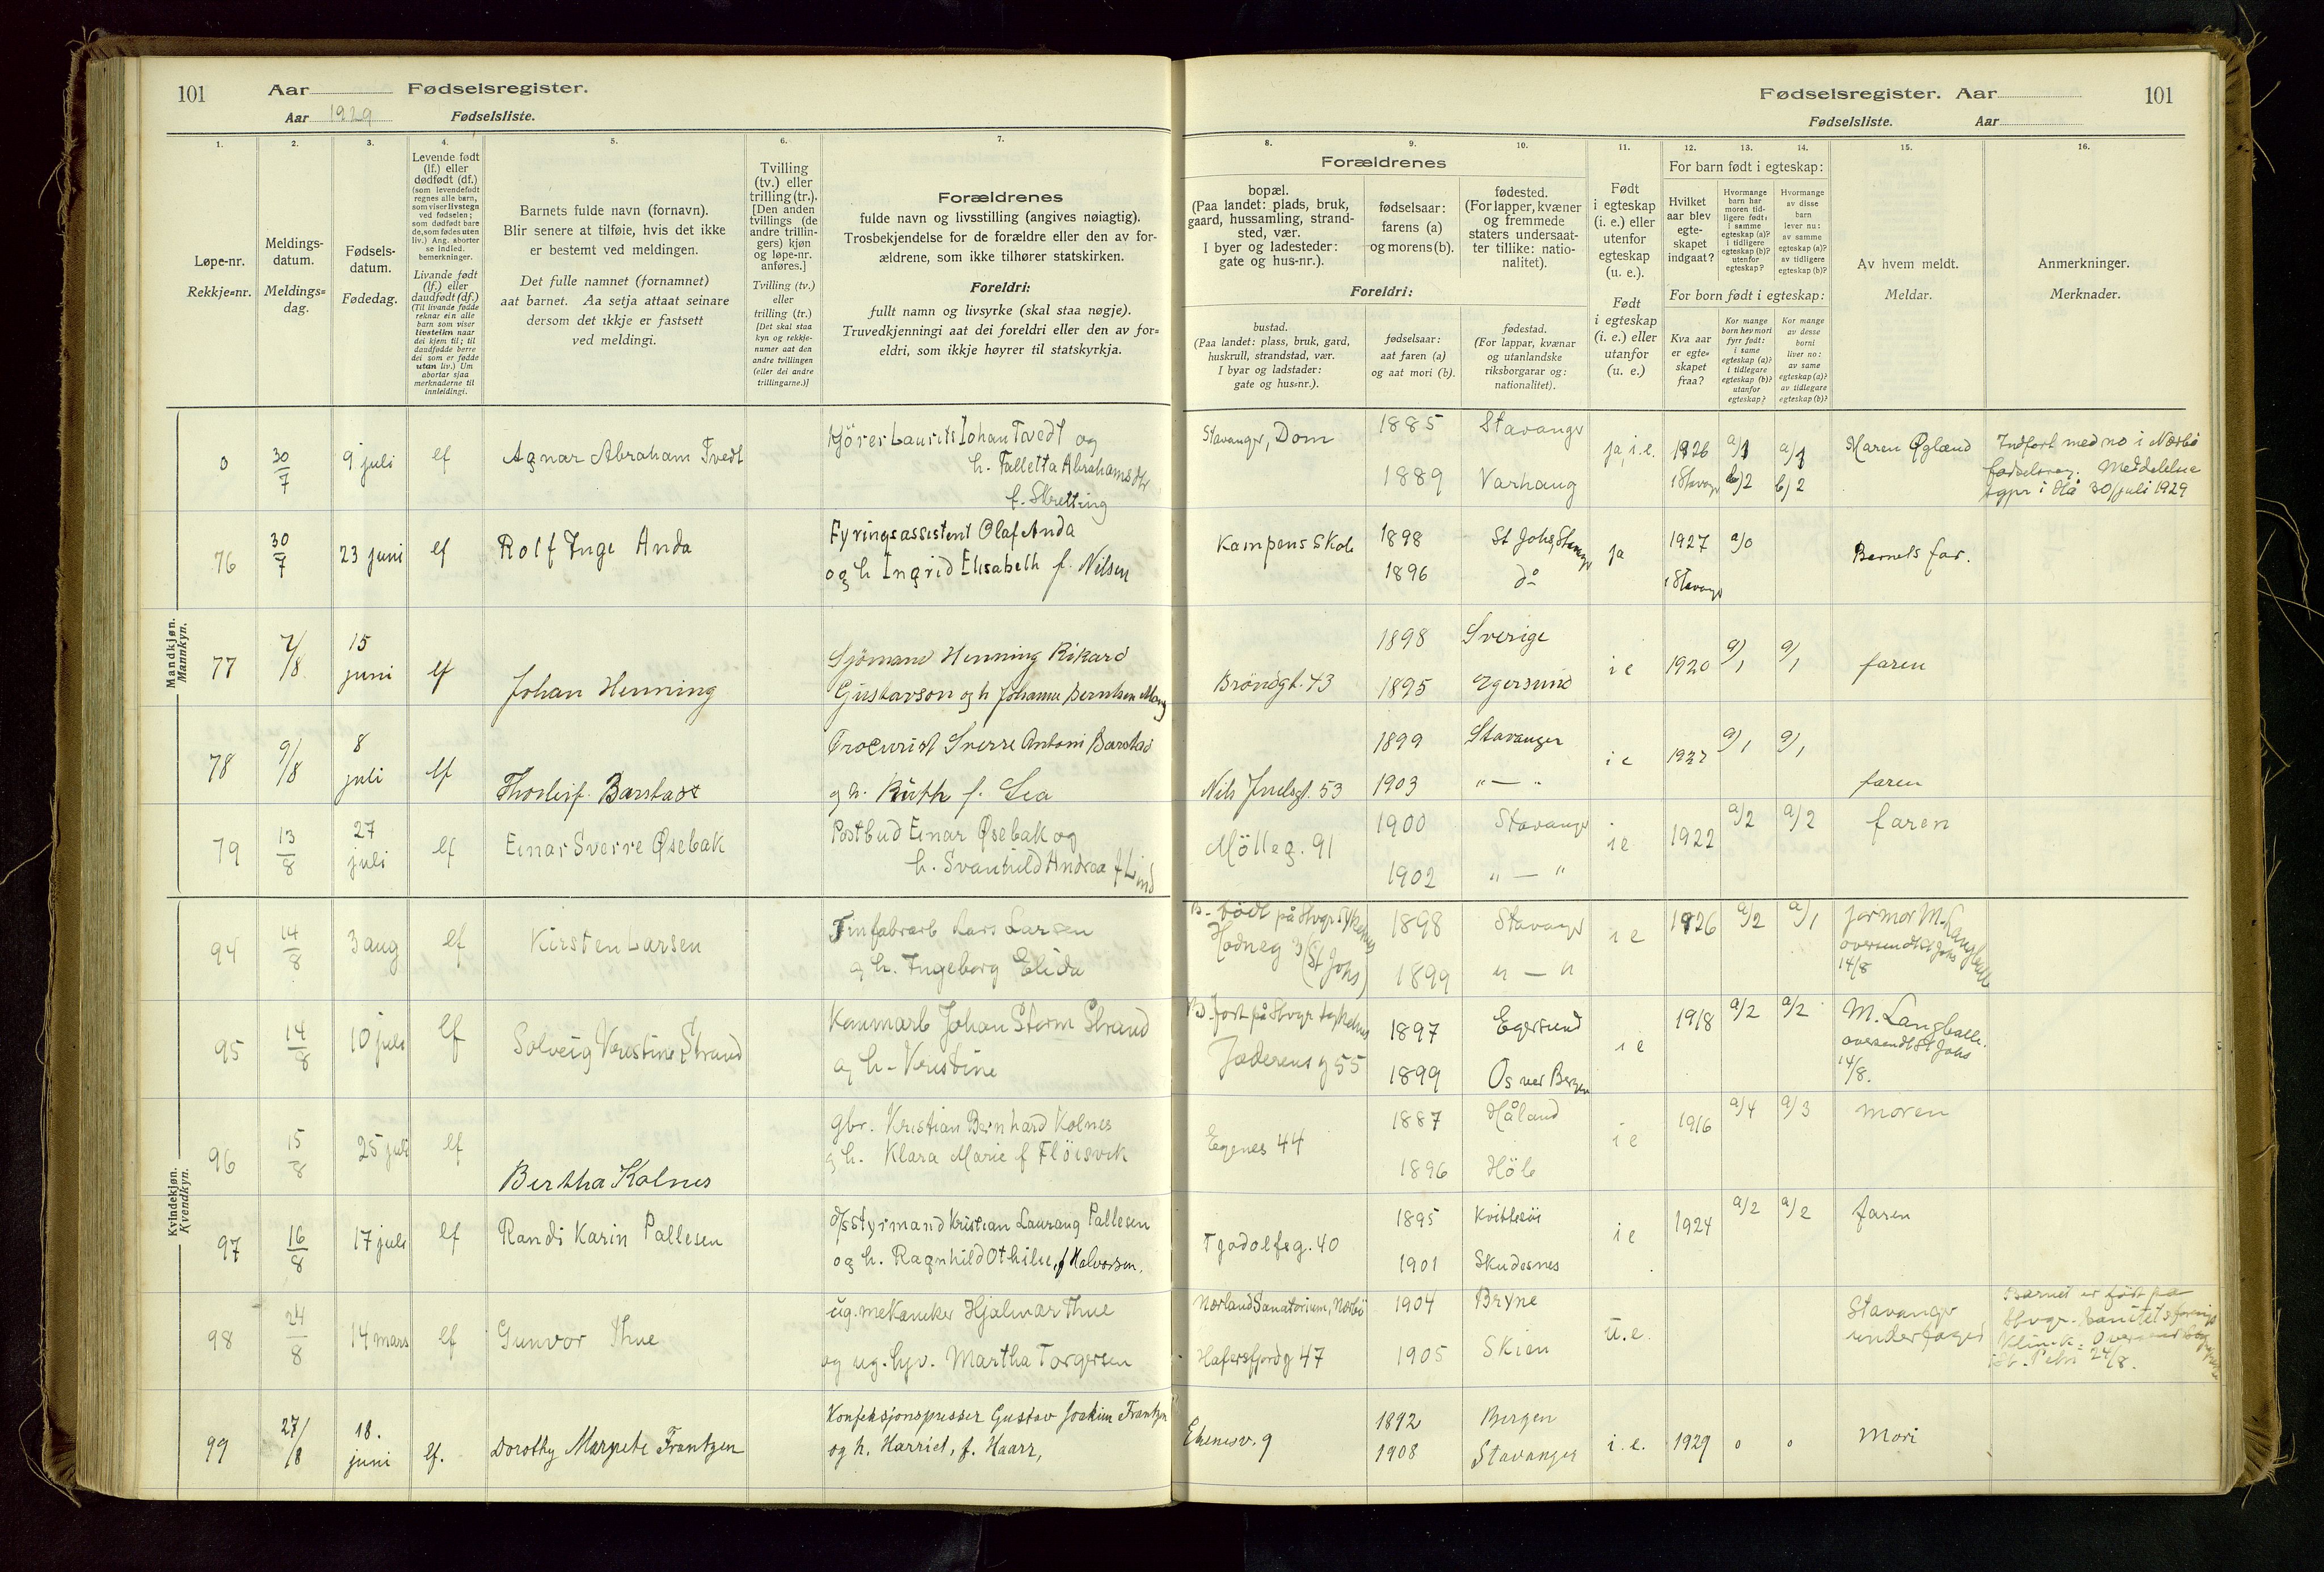 101 Aar Fødselsregister.
Aar 1929 Fødselsliste.
Fødselsregister. Aar 101
Fødselsliste. Aar
1. 2. 3. 4. 5. 6. 7.
Løpe-nr.
Rekkje=nr.
Meldings-
datum.
Meldings=
dag.
Fødsels-
datum.
Fødedag.
Levende født
(lf.) eller
dødfødt (df.)
(som levendefødt
regnes alle barn,
som viser livstegn
ved fødselen;
som dødfødt bare
de, som fødes uten
liv.) Ang. aborter
se indled.
bemerkninger.
Livande født
(lf.) eller
daudfødt (df.)
(Til livande fødde
reknar ein alle
barn som viser
livsteikn naar
dei kjem til; til
daudfødde berre
dei som er fødde
utan liv.) Um
abortar sjaa
merknaderne til
innleidingi.
Barnets fulde navn (fornavn).
Blir senere at tilføie, hvis det ikke
er bestemt ved meldingen.
Det fulle namnet (fornamnet)
aat barnet. Aa setja attaat seinare
dersom det ikkje er fastsett
ved meldingi.
Tvilling
(tv.) eller
trilling (tr.).
[Den anden
tvillings (de
andre trillin-
gers) kjøn
og løpe-nr.
anføres.]
Tvilling (tv.)
eller
trilling (tr.)
[Det skal staa
kyn og rekkje-
numer aat den
andre tvillingen
(eller dei andre
trillingarne.)]
Forældrenes
fulde navn og livsstilling (angives nøiagtig).
Trosbekjendelse for de forældre eller den av for-
ældrene, som ikke tilhører statskirken.
Foreldri:
fullt namn og livsyrke (skal staa nøgje).
Truvedkjenningi aat dei foreldri eller den av for=
eldri, som ikkje høyrer til statskyrkja.
8. 9. 10. 11. 12. 13. 14. 15. 16.
Forældrenes
bopæl.
(Paa landet: plads, bruk,
gaard, hussamling, strand-
sted, vær.
I byer og ladesteder:
gate og hus-nr.).
fødselsaar:
farens (a)
og morens (b).
fødested.
(For lapper, kvæner
og fremmede
staters undersaat-
ter tillike: natio-
nalitet).
Foreldri:
bustad.
(Paa landet: plass, bruk, gard,
huskrull, strandstad, vær.
I byar og ladstader:
gate og hus=nr.).
fødselsaar:
aat faren (a)
og aat mori (b).
fødestad.
(For lappar, kvænar
og utanlandske
riksborgarar og:
nationalitet).
Født
i egteskap
(i. e.) eller
utenfor
egteskap
(u. e.).
Født
i egteskap
(i. e.) eller
utanfor
(u. e.)
For barn født i egteskap:
Hvilket
aar blev
egte-
skapet
indgaat?
Hvormange
barn har
moren tid-
ligere født:
i samme
egteskap (a)?
i tidligere
egteskap (b)?
utenfor
egteskap?
Hvormange
av disse
barn
lever nu:
av samme
egteskap (a)?
av tidligere
egteskap (b)?
For born født i egteskap:
Kva aar
er egte=
skapet
fraa?
Kor mange
born hev mori
fyrr født:
i same
egteskap (a)?
i tidlegare
egteskap (b)?
utanfor
egteskap?
Kor mange
av desse
borni
liver no:
av same
egteskap (a)?
av tidlegare
egteskap (b)?
Av hvem meldt.
Meldar.
Anmerkninger.
Merknader.
Mandkjøn.
Mannkyn.
0 30/7 9 juli lf Agnar Abraham Tvedt Kjörer Laurits Johan Tvedt og
h. Talletta Abrahamsdtr
f. Skretting
Stavanger, Dom 1885 Stavanger ja, i.e. 1926 a/1 a/1 Maren Øglænd Indført med no i Nærbö
1889 Varhaug i Stavgr b/2 b/2 fødselsreg. Meddelelse
i Hå 30/juli 1929
76 30/7 23 juni lf Rolf Inge Anda Fyringsassistent Olaf Anda
og h Ingrid Elisabeth f. Nilsen
Kampens Skole 1898 St Johs, Stavgr ja 1927 a/0 Barnets far.
1896 do i Stavgr
77 2/8 15 juni lf Johan Henning Sjömand Henning Rikard
Gustavson og h Johanne Berntsen
Bröndgt. 43 1898 Sverige i e 1920 a/1 a/1 faren
1895 Egersund
78 9/8 8 juli lf Thorleif Barstad Procurist Sverre Antoni Barstad
og h. Ruth f. Lea
Nils Juelsgt. 53 1899 Stavanger i e 1927 a/1 a/1 faren
1903 " — "
79 13/8 27 juli lf Einar Sverre Øsebak Postbud Einar Øsebak og
h. Svanhild Andrea f Lind
Mölleg. 91 1900 Stavanger i e 1922 a/2 a/2 faren
1902 " — "
Kvindekjøn.
Kvendkyn.
94 14/8 3 aug lf Kirsten Larsen Tinfabrarb Lars Larsen
og h. Ingeborg Elida
B. födt på Stvgr sykehus
Hodneg 3 (St Johs) 1898 Stavanger i e 1926 a/2 a/1 jormor M. Langballe
1899 " — " oversendt St Johs
14/8
95 14/8 10 juli lf Solveig Kristine Strand Kanmarb Johan Storm Strand
og h - Kristine
B. født på Stvgr sykehus
Jæderens g 55 1897 Egersund i e 1918 a/2 a/2 M. Langballe.
1899 Os ved Bergen oversendt St Johs
14/8.
96 15/8 25 juli lf Bertha Kolnes gbr. Kristian Bernhard Kolnes
og h. Klara Marie f Flöisvik
Egenes 44 1887 Håland i e 1916 a/4 a/3 moren
1896 Höle
97 16/8 17 juli lf Randi Karin Pallesen d/s styrmand Kristian Laurang Pallesen
og h. Ragnhild Othilie, f Halvorsen.
Tjodolfsg. 40 1895 Kvitsöi i e 1924 a/2 a/2 faren
1901 Skudesnes
98 24/8 14 mars lf Gunvor Thue ug. mekaniker Hjalmar Thue
og ug. hpv. Martha Torgersen
Nærland Sanatorium, Nærbö 1904 Bryne u.e. Stavanger
underfoged
Hafersfjordg 47 1905 Skien
Barnet er födt på
Stvgr. Sanitetsforenings
Klinik.
i St. Petri 24/8.
99 27/8 18. juni lf. Dorothy Margrete Frantzen Konfeksjonspresser Gustav Joakim Frantzen
og h. Harriet, f. Haarr,
Ekenesv. 9 1892 Bergen i.e. 1929 0 0 Mori
1908 Stavanger